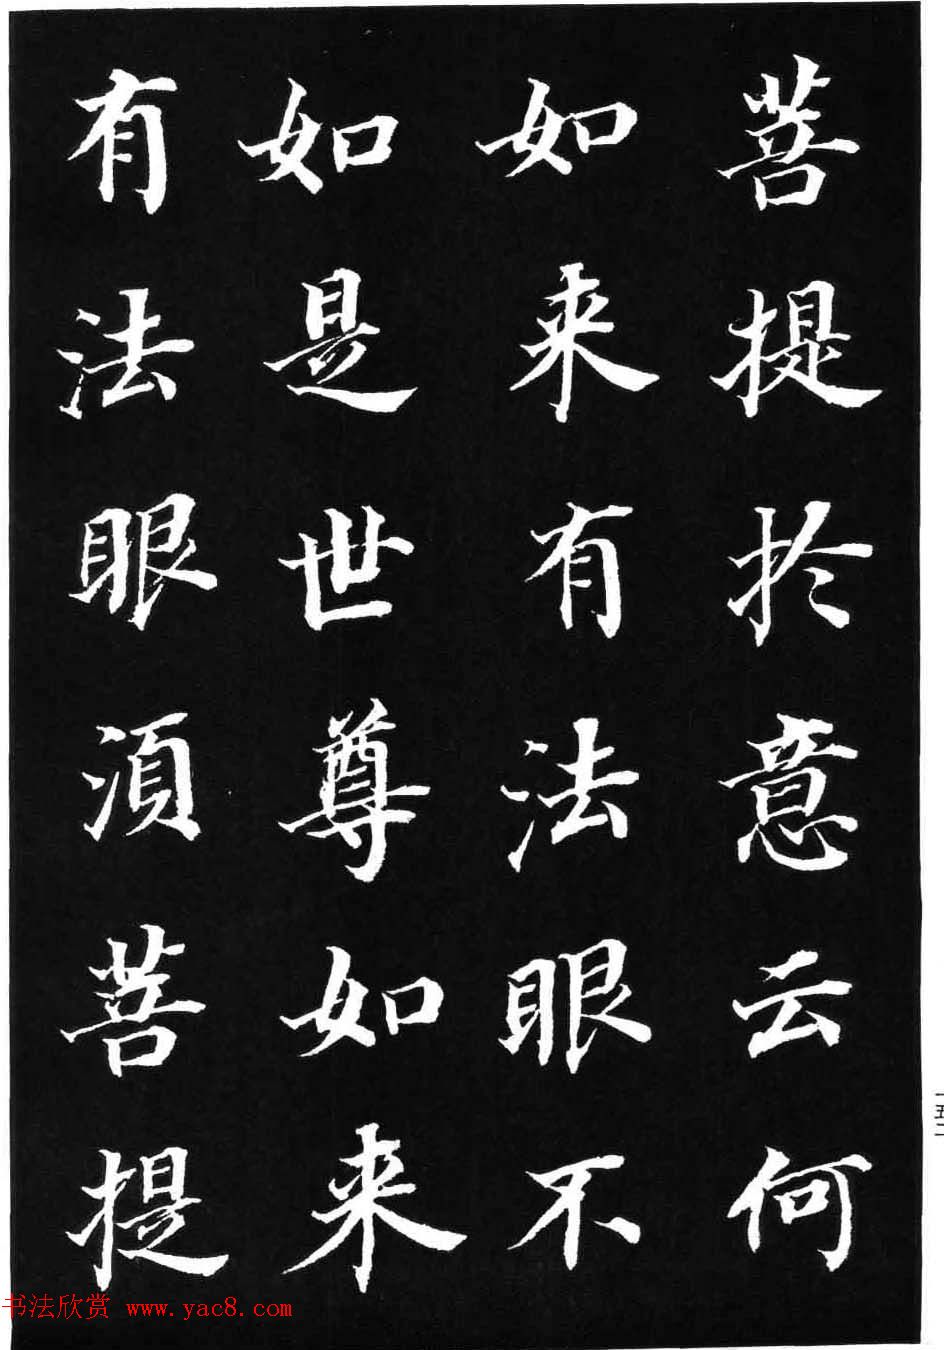 菩提於意云何
如来有法眼不
如是世尊如来
有法眼湏菩提
一五二
书法欣赏 www.yac8.com